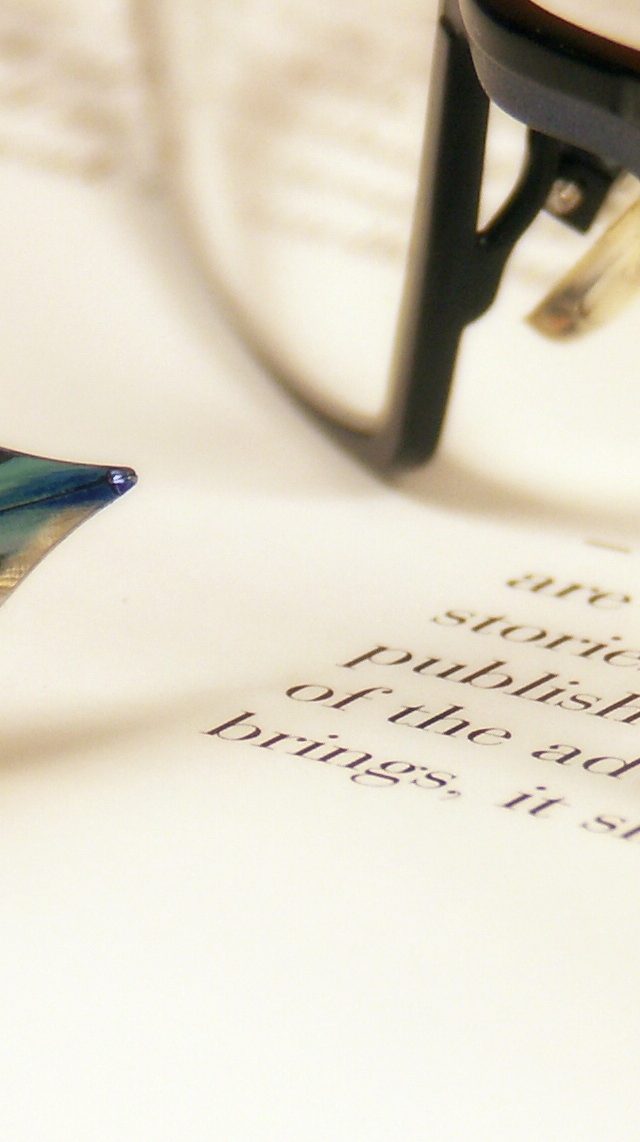 are
storie
publish
of the ad
brings, it s